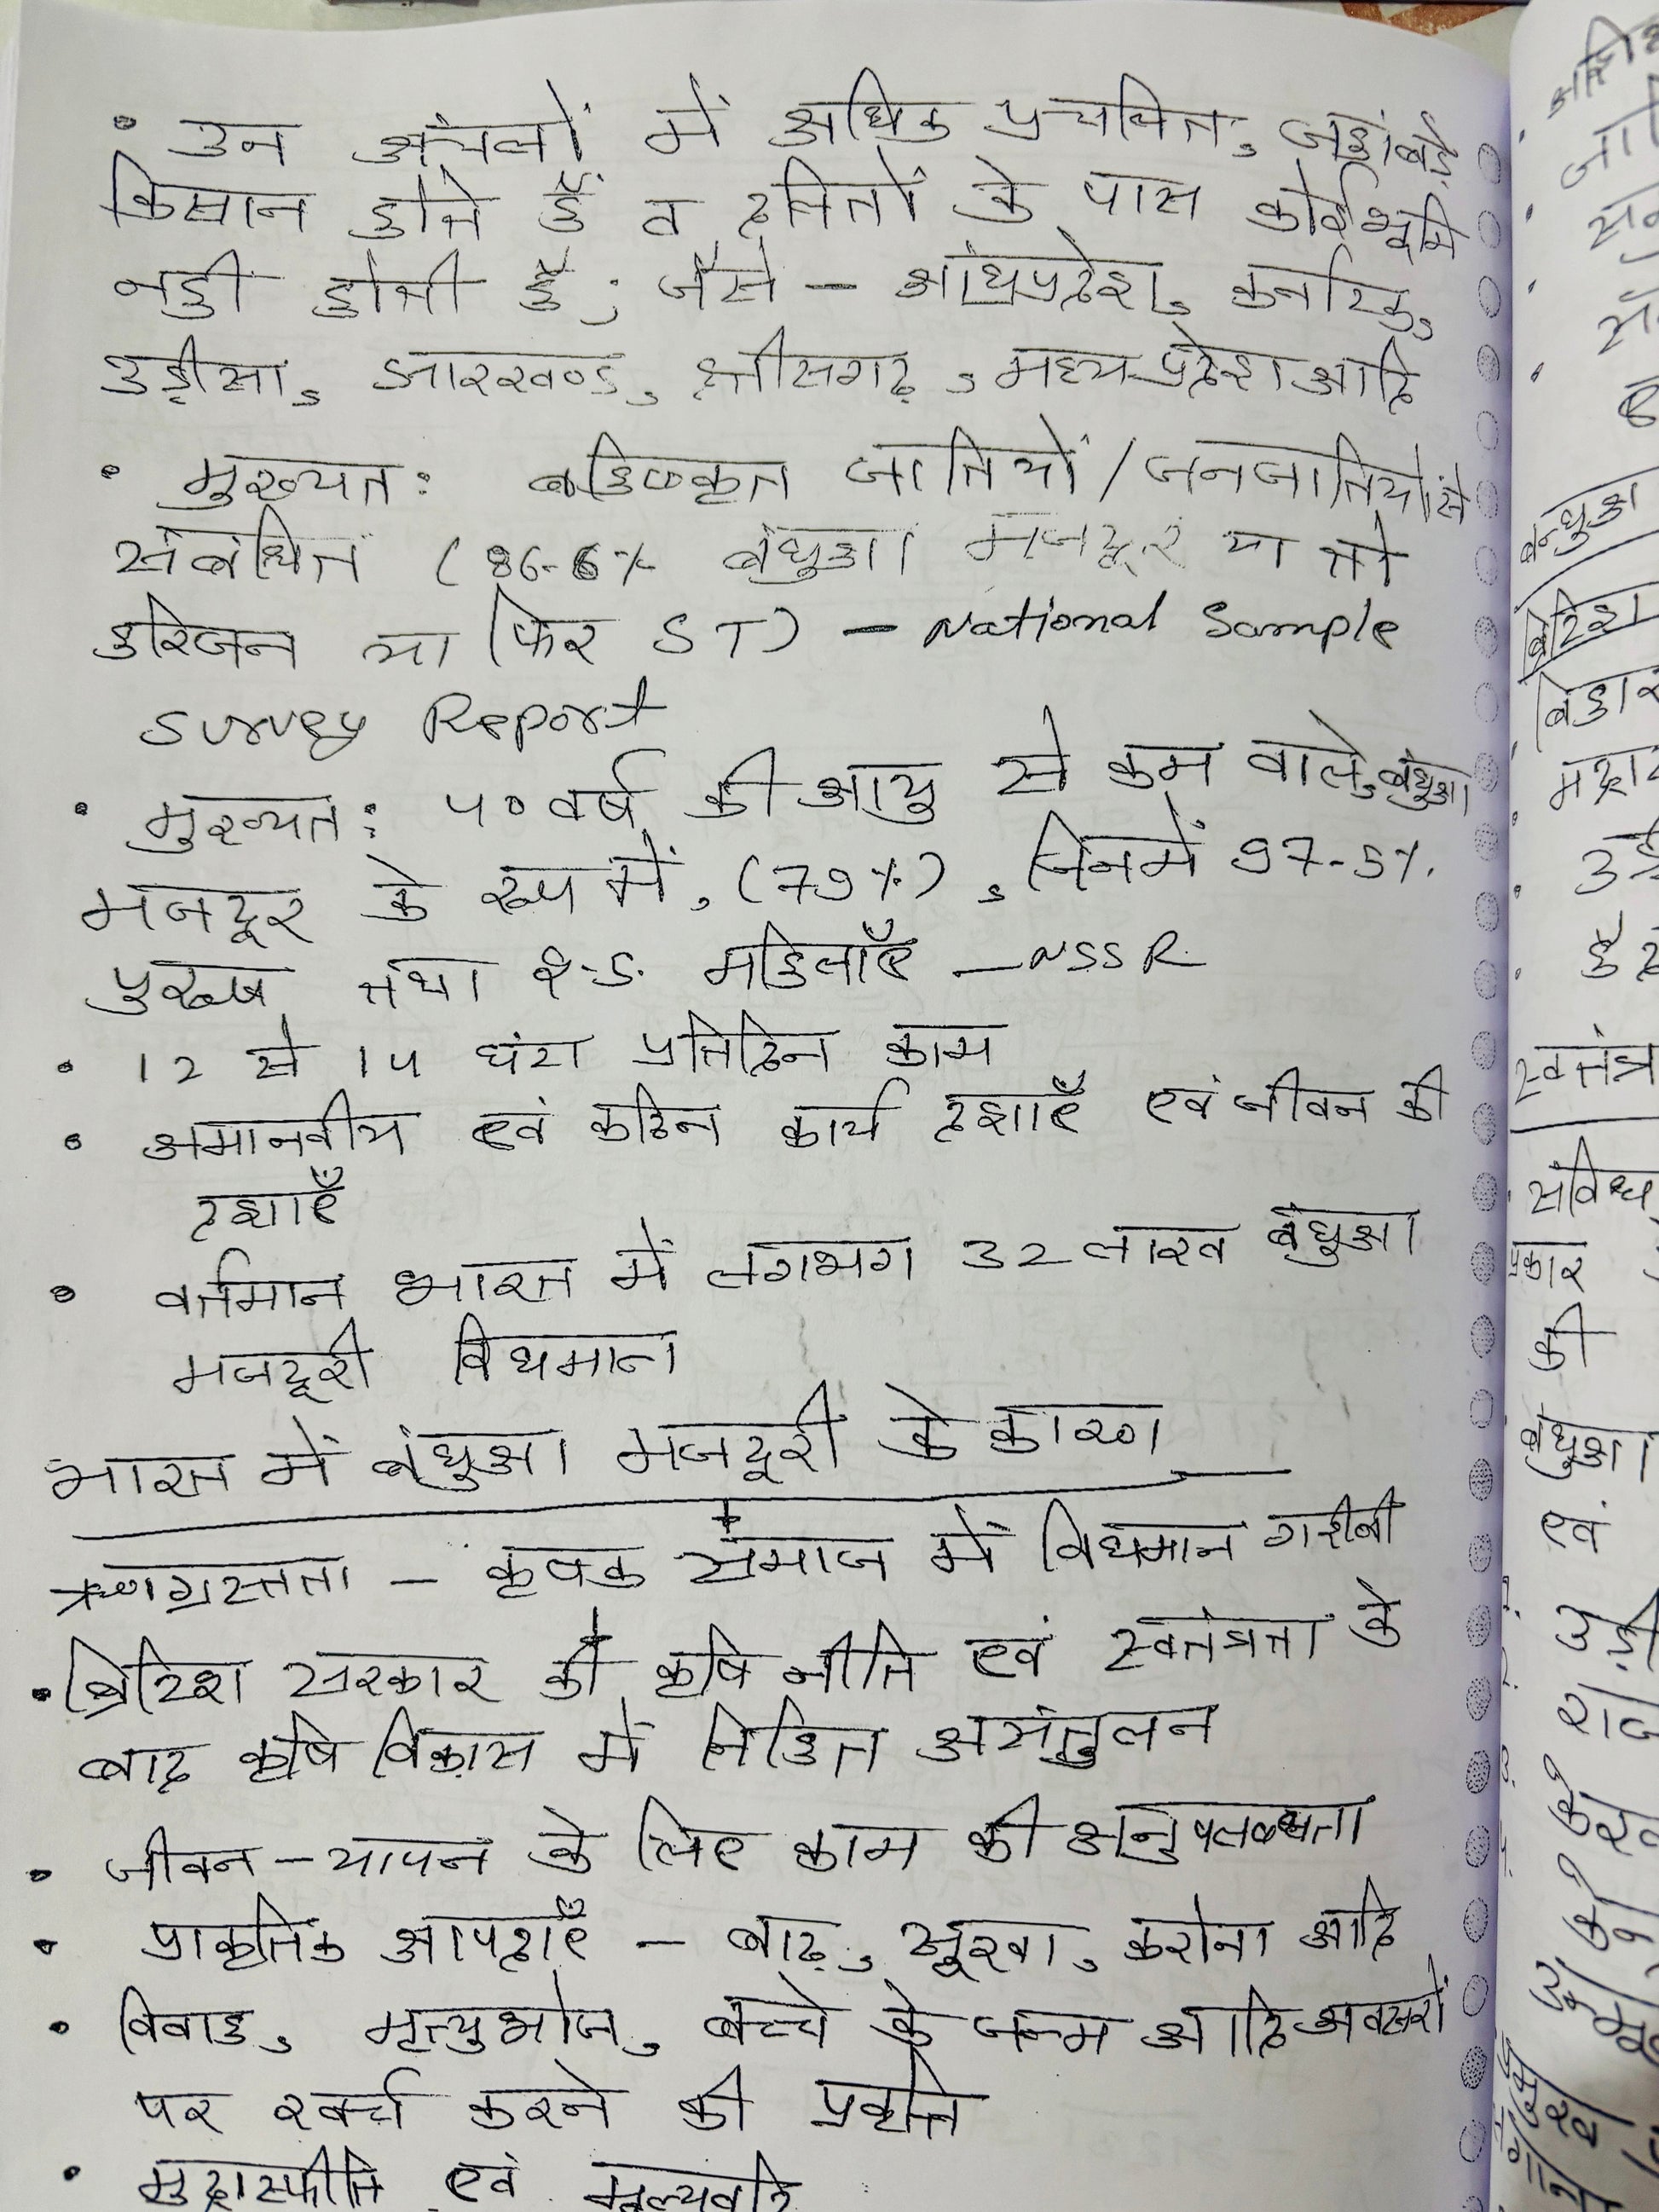 • उन अंचलों में अधिक प्रचलित, जहां बड़े
किसान होते हैं व दलितों के पास कोई भूमि
नही होती है; जैसे - आंध्रप्रदेश, कर्नाटक,
उड़ीसा, झारखण्ड, छत्तीसगढ़, मध्यप्रदेश आदि
• मुख्यत: बहिष्कृत जातियों/जनजातियों से
संबंधित (86.6% बंधुआ मजदूर या तो
हरिजन या फिर ST) - National Sample
Survey Report
• मुख्यत: 40 वर्ष की आयु से कम वाले, बंधुआ
मजदूर के रूप में, (79%), जिनमें 97.5%
पुरूष तथा 2.5. महिलाएँ - NSSR
• 12 से 14 घंटा प्रतिदिन काम
• अमानवीय एवं कठिन कार्य दशाएँ एवं जीवन की
दशाएँ
• वर्तमान भारत में लगभग 32 लाख बंधुआ
मजदूरी विधमान
भारत में बंधुआ मजदूरी के कारण
ऋणग्रस्तता - कृषक समाज में विधमान गरीबी
• ब्रिटिश सरकार की कृषि नीति एवं स्वतंत्रता के
बाद कृषि विकास में निहित असंतुलन
• जीवन-यापन के लिए काम की अनुपलब्धता
• प्राकृतिक आपदाएँ - बाढ़, सूखा, करोना आदि
• विवाह, मृत्युभोज, बच्चे के जन्म आदि अवसरों
पर खर्च करने की प्रवृत्ति
• मुद्रास्फीति एवं मूल्यवृद्धि
बन्धुआ
ब्रिटिश
बिहार
स्वतंत्र
प्रकार
की
बंधुआ
एवं